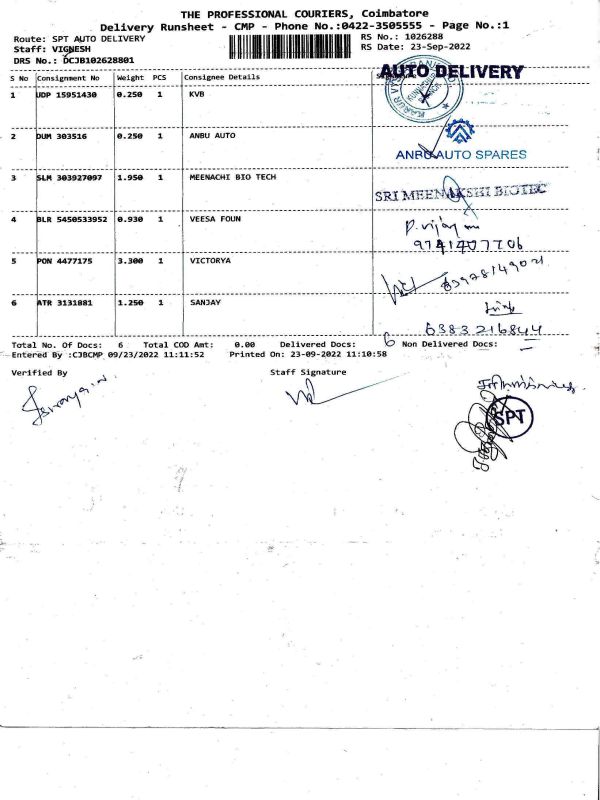 THE PROFESSIONAL COURIERS, Coimbatore
Delivery Runsheet - CMP - Phone No.:0422-3505555 - Page No.:1
Route: SPT AUTO DELIVERY RS No.: 1026288
Staff: VIGNESH RS Date: 23-Sep-2022
DRS No.: DCJB102628801
AUTO DELIVERY
S No Consignment No Weight PCS Consignee Details
1 UDP 15951430 0.250 1 KVB
2 DUM 303516 0.250 1 ANBU AUTO
ANBU AUTO SPARES
3 SLM 303927097 1.950 1 MEENACHI BIO TECH
SRI MEENAKSHI BIOTEC
4 BLR 5450533952 0.930 1 VEESA FOUN
9741407706
5 PON 4477175 3.300 1 VICTORYA
6 ATR 3131881 1.250 1 SANJAY
6383216844
Total No. Of Docs: 6 Total COD Amt: 0.00 Delivered Docs: 6 Non Delivered Docs:
Entered By :CJBCMP 09/23/2022 11:11:52 Printed On: 23-09-2022 11:10:58
Verified By Staff Signature
SPT